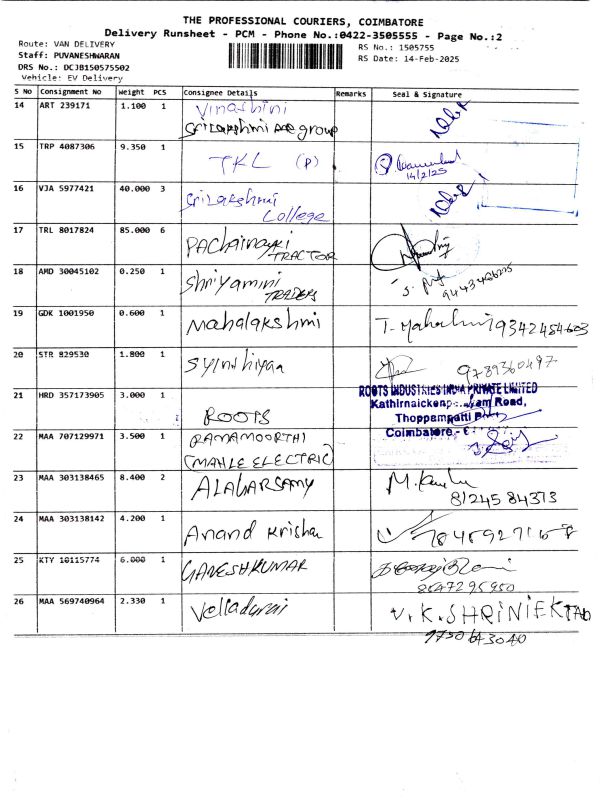 THE PROFESSIONAL COURIERS, COIMBATORE
Delivery Runsheet - PCM - Phone No.:0422-3505555 - Page No.:2
Route: VAN DELIVERY
Staff: PUVANESHWARAN
DRS No.: DCJB150575502
Vehicle: EV Delivery
RS No.: 1505755
RS Date: 14-Feb-2025
S No Consignment No Weight PCS Consignee Details Remarks Seal & Signature
14 ART 239171 1.100 1 Vinashini
Srilakshmi group
15 TRP 4087306 9.350 1 TKL (P)
14/2/25
16 VJA 5977421 40.000 3 Srilakshmi
College
17 TRL 8017824 85.000 6 PAChainayki
TRACTOR
18 AMD 30045102 0.250 1 Shriyamini
TRADERS
19 GDK 1001950 0.600 1 Mahalakshmi T. Mahalxmi 9342484603
20 STR 829530 1.800 1 Synthiyaa 9789360497
21 HRD 357173905 3.000 1 ROOTS
ROOTS INDUSTRIES INDIA PRIVATE LIMITED
Road,
Thoppampatti
Coimbatore -
22 MAA 707129971 3.500 1 RAMAMOORTHI
(MAHLE ELECTRIC)
23 MAA 303138465 8.400 2 ALAGARSAMY
81245 84373
24 MAA 303138142 4.200 1 Anand Krishan
25 KTY 10115774 6.000 1 GANESHKUMAR
8647295950
26 MAA 569740964 2.330 1 Velladurai V.K.SHRINIEKTAD